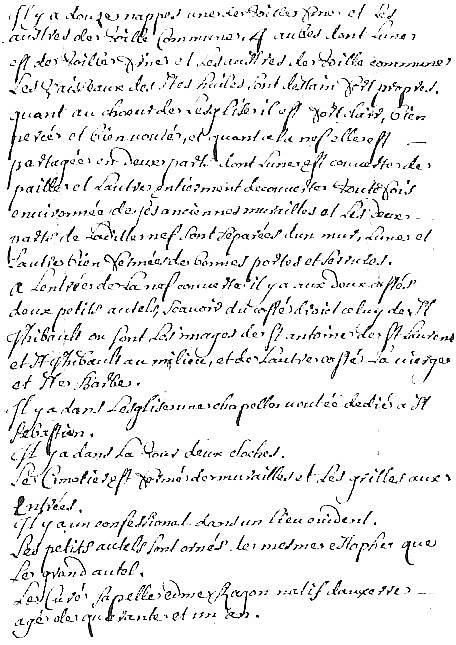 Il y a douze nappes une de toille fine et Les
austres de toille Commune, 4 aubes dont L'une
est de toille fine et Les austres de toille commune
Les Vaisseaux des Stes huiles sont d'estain fort propres.
quant au choeur de L'esglise il est fort clair, bien
percé et bien vouté, et quant a la nef elle est
partagée en deux parts dont L'une est couverte de
paille et L'autre entierment decouverte toute fois
environnée de ses anciennes murailles et Les deux
parts de Laditte nef sont separées d'un mur, L'une et
L'autre bien fermée de bonnes portes et serrures.
A L'entrée de La nef couverte il y a aux deux costés
deux petits autels, scavoir du costé droict celuy de St
Thibault ou sont Les images de St antoine de St Laurent
et St Thibault au milieu, et de L'autre costé La vierge
et Ste Barbe.
Il y a dans L'esglise une chapelle voutée dedié a St
sebastien.
Il y a dans La tour deux cloches.
Le Cimetiere est fermé de murailles et Les grilles aux
Entrées.
Il y a un confessional dans un lieu evident.
Les petits autels sont ornés de mesme estoffe que
Le grand autel.
Le Curé s'apelle edme Ragon natif d'auxerre
agé de quarante et un an.